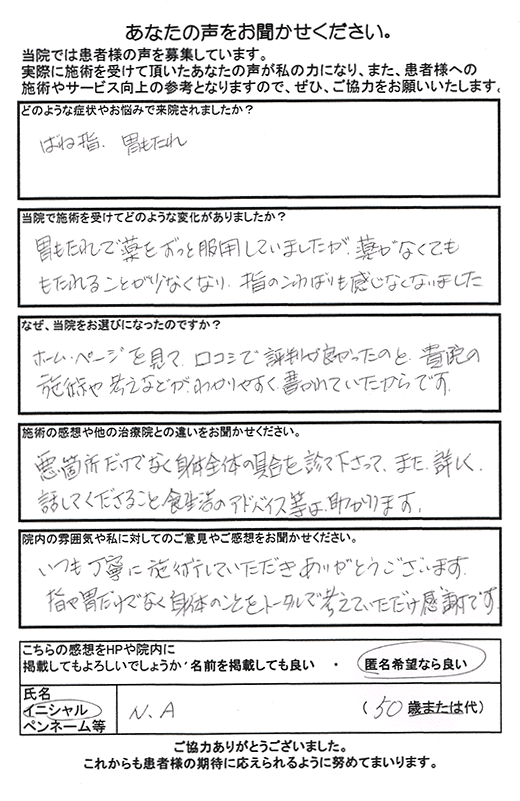 あなたの声をお聞かせください。
当院では患者様の声を募集しています。
実際に施術を受けて頂いたあなたの声が私の力になり、また、患者様への
施術やサービス向上の参考となりますので、ぜひ、ご協力をお願いいたします。
どのような症状やお悩みで来院されましたか？
ばね指. 胃もたれ
当院で施術を受けてどのような変化がありましたか？
胃もたれで薬をずっと服用していましたが、薬がなくても
もたれることが少なくなり、指のこわばりも感じなくなりました
なぜ、当院をお選びになったのですか？
ホームページを見て、口コミで評判が良かったのと、貴院の
施術や考えなどが、わかりやすく書かれていたからです。
施術の感想や他の治療院との違いをお聞かせください。
悪箇所だけでなく身体全体の具合を診て下さって、また、詳しく、
話してくださること、食生活のアドバイス等は、助かります。
院内の雰囲気や私に対してのご意見やご感想をお聞かせください。
いつも丁寧に施術していただきありがとうございます。
指や胃だけでなく身体のことをトータルで考えていただけ感謝です。
こちらの感想をHPや院内に
掲載してもよろしいでしょうか 名前を掲載しても良い ・ 匿名希望なら良い
氏名
イニシャル
ペンネーム等
N.A (50 歳または代)
ご協力ありがとうございました。
これからも患者様の期待に応えられるように努めてまいります。